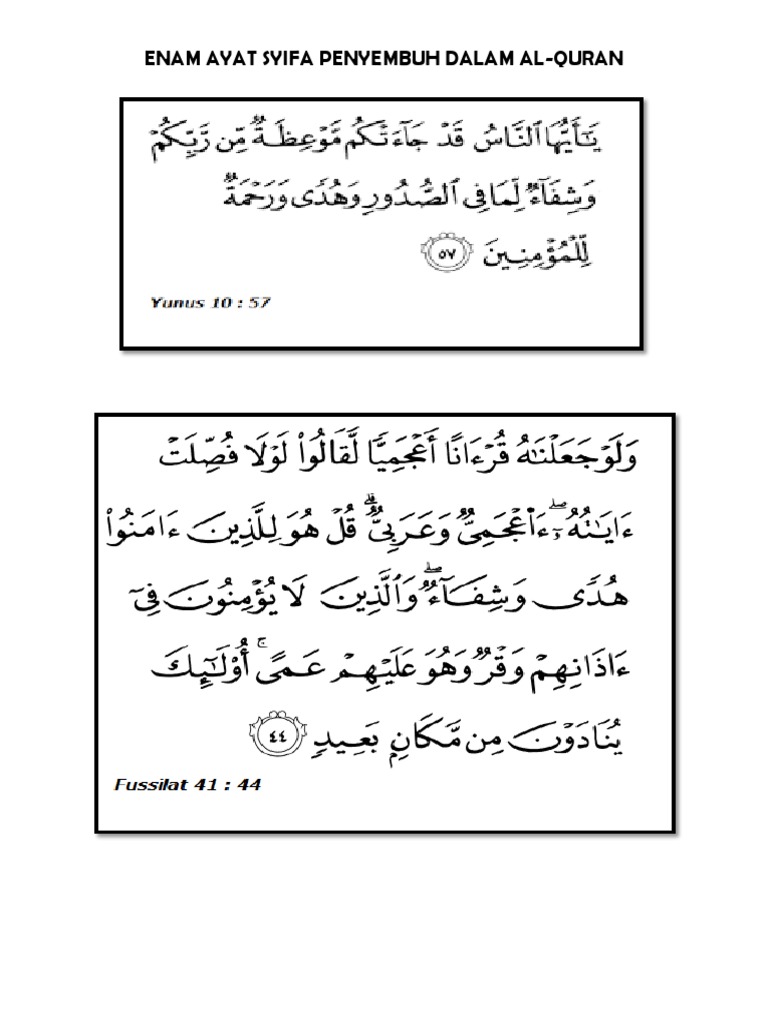 ENAM AYAT SYIFA PENYEMBUH DALAM AL-QURAN
يَـٰٓأَيُّهَا ٱلنَّاسُ قَدْ جَآءَتْكُم مَّوْعِظَةٌ مِّن رَّبِّكُمْ
وَشِفَآءٌ لِّمَا فِى ٱلصُّدُورِ وَهُدًى وَرَحْمَةٌ
لِّلْمُؤْمِنِينَ ٥٧
Yunus 10 : 57
وَلَوْ جَعَلْنَـٰهُ قُرْءَانًا أَعْجَمِيًّا لَّقَالُوا۟ لَوْلَا فُصِّلَتْ
ءَايَـٰتُهُۥٓ ۖ ءَا۬عْجَمِىٌّ وَعَرَبِىٌّ ۗ قُلْ هُوَ لِلَّذِينَ ءَامَنُوا۟
هُدًى وَشِفَآءٌ ۖ وَٱلَّذِينَ لَا يُؤْمِنُونَ فِىٓ
ءَاذَانِهِمْ وَقْرٌ وَهُوَ عَلَيْهِمْ عَمًى ۚ أُو۟لَـٰٓئِكَ
يُنَادَوْنَ مِن مَّكَانٍۭ بَعِيدٍ ٤٤
Fussilat 41 : 44